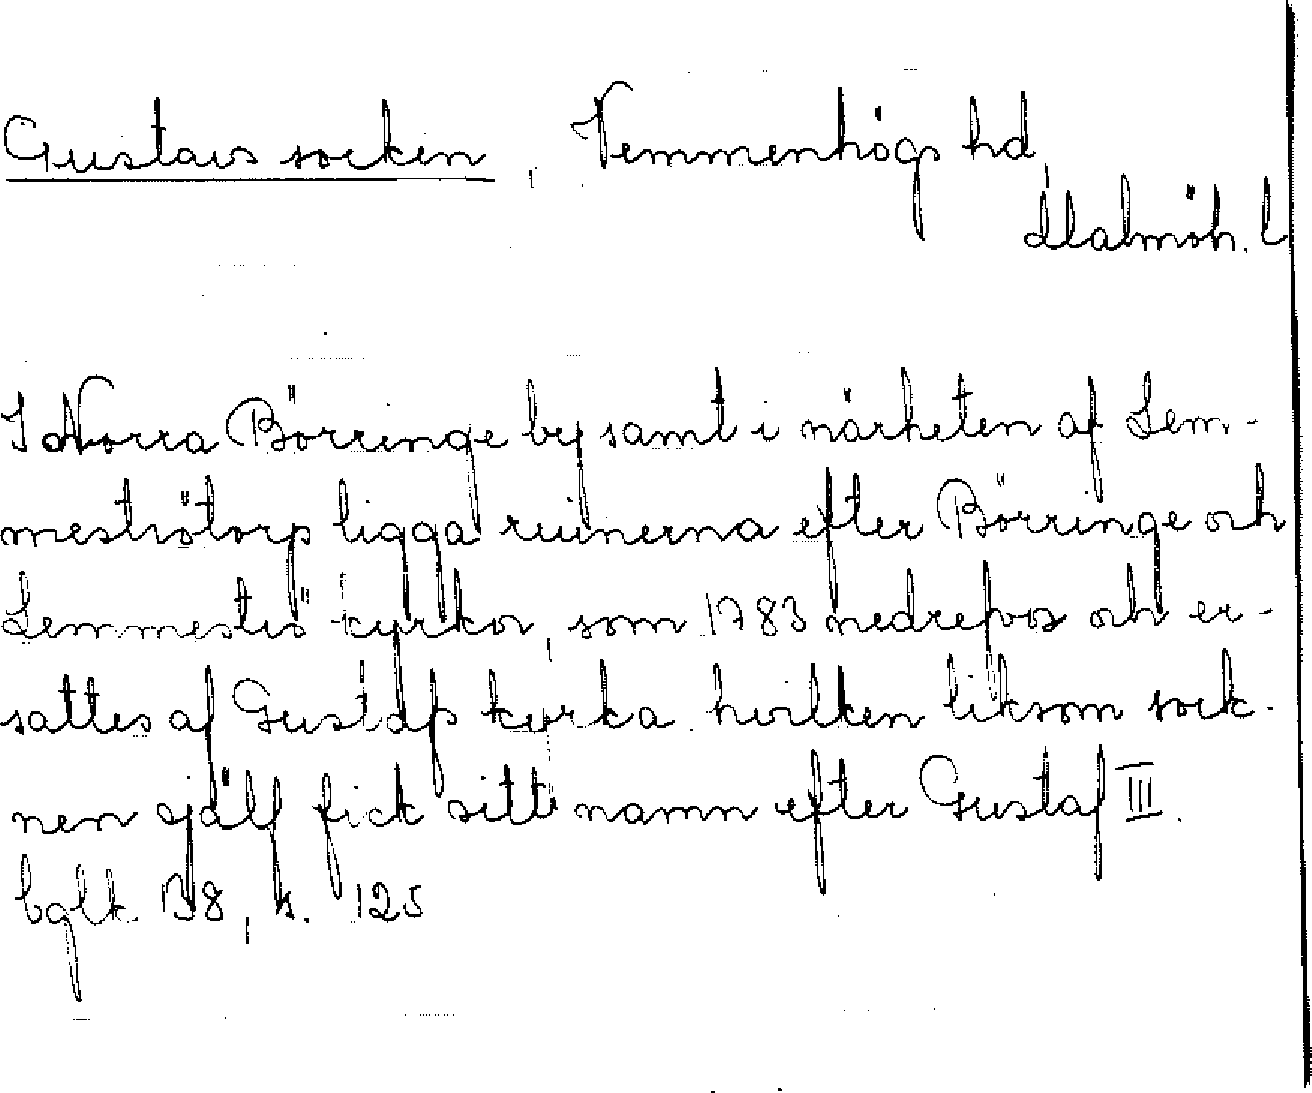 Gustavs socken, Vemmenhögs hd,
Malmöh. l
I Norra Börringe by samt i närheten af Lem-
meströtorp ligga ruinerna efter Börringe och
Lemmeströ kyrkor, som 1783 nedrefvos och er-
sattes af Gustafs kyrka. hvilken liksom sock-
nen själf fick sitt namn efter Gustaf III.
bglk. B8, s. 125